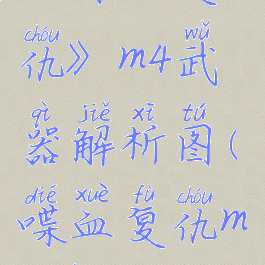 chóu wǔ
仇》m4武
qì jiě xī tú
器解析图(
dié xuè fù chóu
喋血复仇m